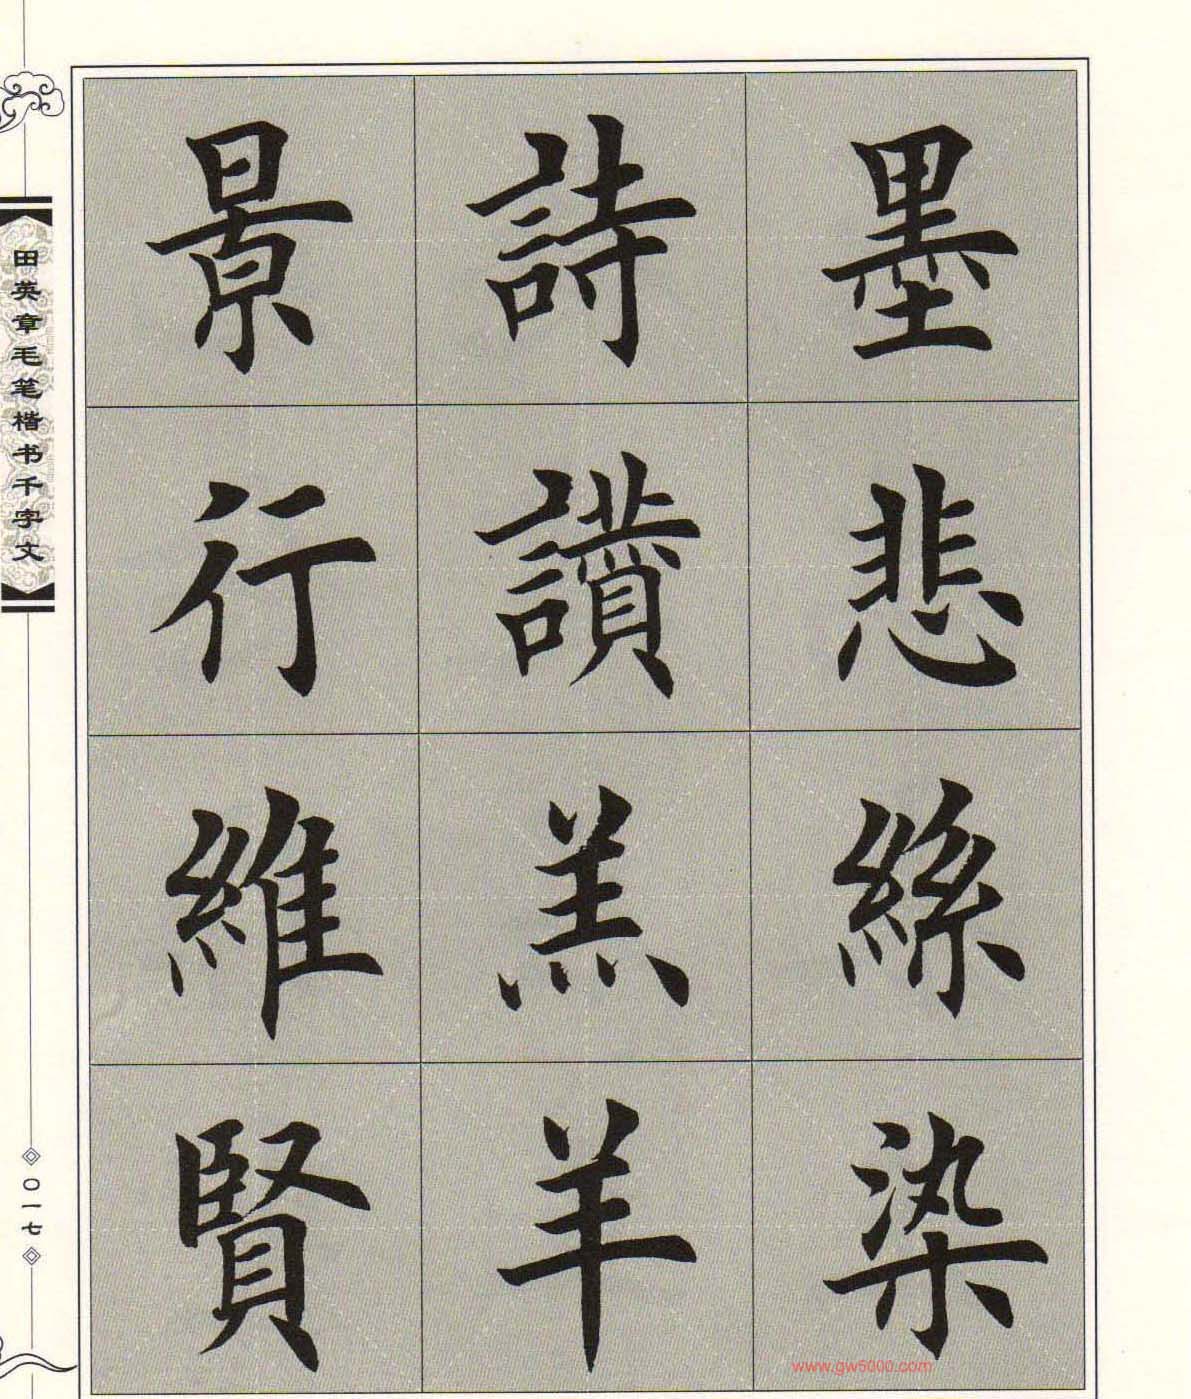 墨悲絲染
詩讃羔羊
景行維賢
田英章毛笔楷书千字文
〇一七
www.gw5000.com